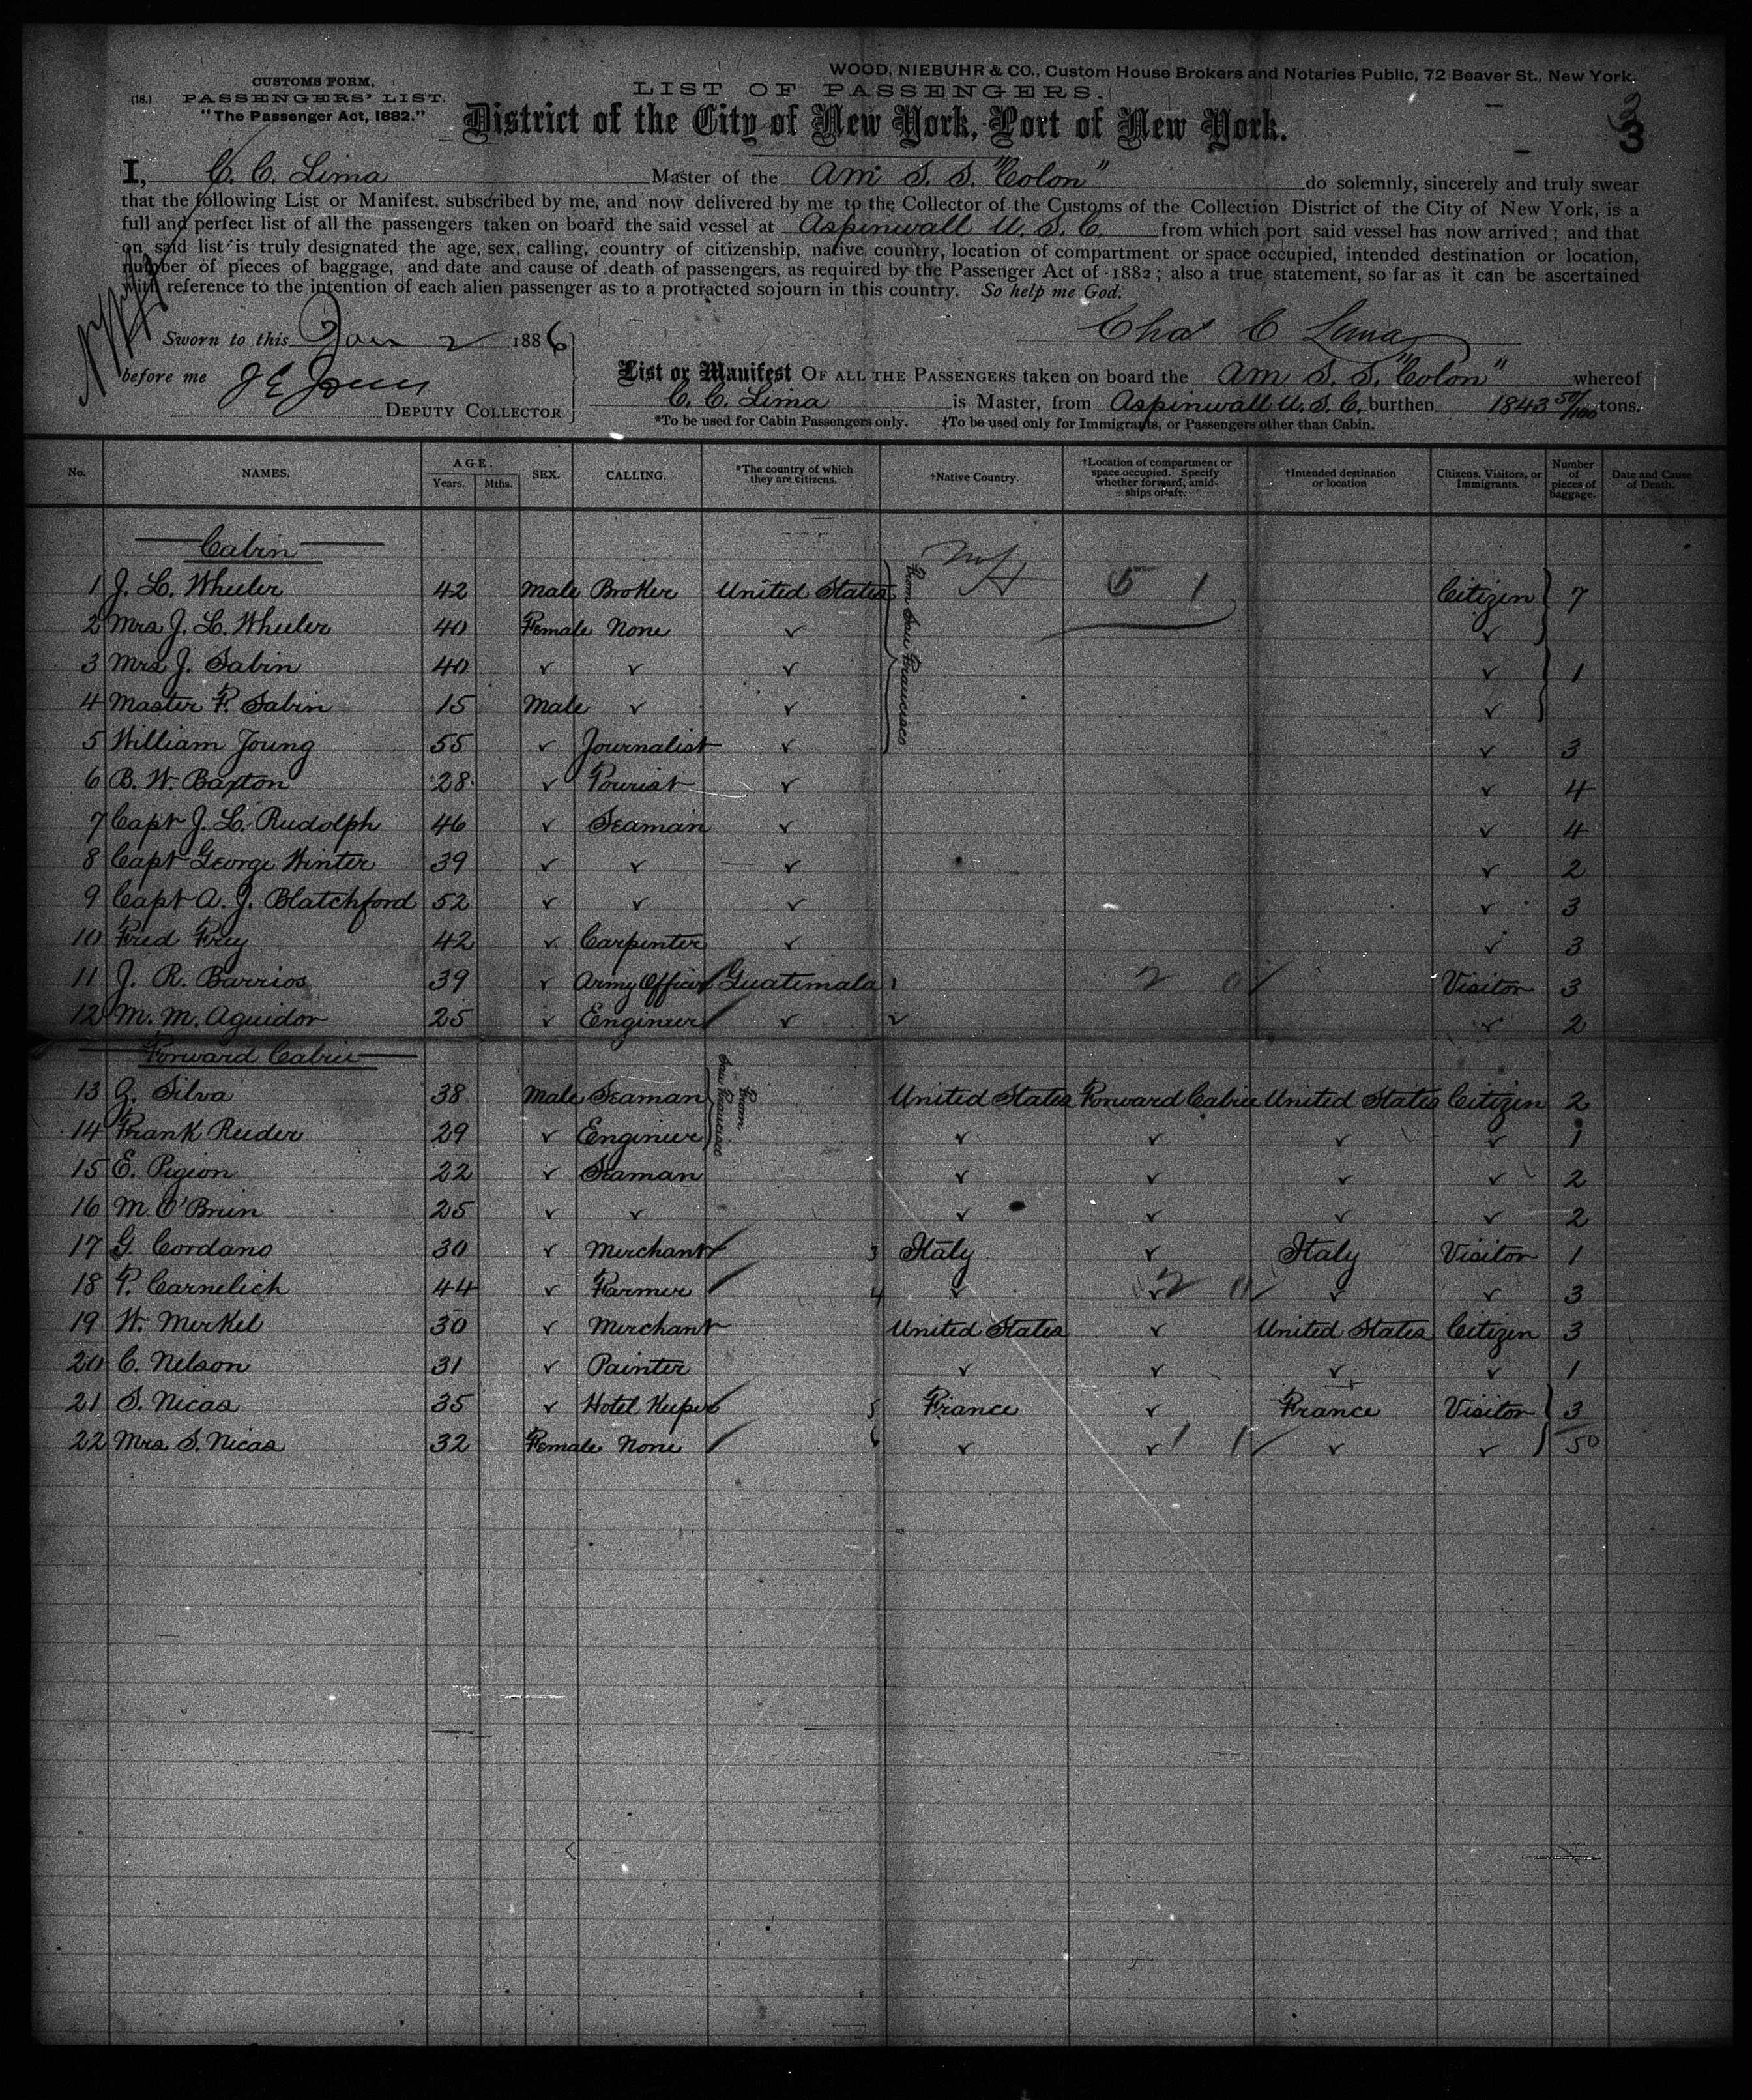 WOOD, NIEBUHR & CO., Custom House Brokers and Notaries Public, 72 Beaver St., New York.
CUSTOMS FORM,
(18.) PASSENGERS' LIST.
"The Passenger Act, 1882."
LIST OF PASSENGERS.
District of the City of New York, Port of New York.
3
I, C. C. Lima Master of the Am S. S. "Colon" do solemnly, sincerely and truly swear
that the following List or Manifest, subscribed by me, and now delivered by me to the Collector of the Customs of the Collection District of the City of New York, is a
full and perfect list of all the passengers taken on board the said vessel at Aspinwall U. S. C. from which port said vessel has now arrived; and that
on said list is truly designated the age, sex, calling, country of citizenship, native country, location of compartment or space occupied, intended destination or location,
number of pieces of baggage, and date and cause of death of passengers, as required by the Passenger Act of 1882; also a true statement, so far as it can be ascertained
with reference to the intention of each alien passenger as to a protracted sojourn in this country. So help me God.
Chas C Lima
Sworn to this Jan 2 1886
before me
DEPUTY COLLECTOR
List or Manifest OF ALL THE PASSENGERS taken on board the Am S. S. "Colon" whereof
C. C. Lima is Master, from Aspinwall U. S. C. burthen 1843 50/100 tons.
*To be used for Cabin Passengers only. †To be used only for Immigrants, or Passengers other than Cabin.
No. NAMES. AGE. Years. Mths. SEX. CALLING. *The country of which they are citizens. †Native Country. †Location of compartment or space occupied. Specify whether forward, amidships or aft. †Intended destination or location Citizens, Visitors, or Immigrants. Number of pieces of baggage. Date and Cause of Death.
Cabin
1 J. L. Wheeler 42 Male Broker United States 5 1 Citizen 7
2 Mrs J. L. Wheeler 40 Female None ✓ ✓
3 Mrs J. Sabin 40 ✓ ✓ ✓ ✓ 1
4 Master F. Sabin 15 Male ✓ ✓ ✓
From San Francisco
5 William Young 55 ✓ Journalist ✓ ✓ 3
6 B. W. Baxton 28 ✓ Tourist ✓ ✓ 4
7 Capt J. L. Rudolph 46 ✓ Seaman ✓ ✓ 4
8 Capt George Winter 39 ✓ ✓ ✓ ✓ 2
9 Capt A. J. Blatchford 52 ✓ ✓ ✓ ✓ 3
10 Fred Frey 42 ✓ Carpenter ✓ ✓ 3
11 J. R. Barrios 39 ✓ Army Officer Guatemala 1 2 0 Visitor 3
12 M. M. Aguidor 25 ✓ Engineer ✓ 2 ✓ 2
Forward Cabin
13 G. Silva 38 Male Seaman United States Forward Cabin United States Citizen 2
From San Francisco
14 Frank Reeder 29 ✓ Engineer ✓ ✓ ✓ ✓ 1
15 E. Pigeon 22 ✓ Seaman ✓ ✓ ✓ ✓ 2
16 M. O'Brien 25 ✓ ✓ ✓ ✓ ✓ ✓ 2
17 G. Cordano 30 ✓ Merchant 3 Italy ✓ Italy Visitor 1
18 P. Carnelich 44 ✓ Farmer 4 ✓ ✓ 2 11 ✓ ✓ 3
19 W. Merkel 30 ✓ Merchant United States ✓ United States Citizen 3
20 C. Nelson 31 ✓ Painter ✓ ✓ ✓ ✓ 1
21 S. Nicas 35 ✓ Hotel Keeper 5 France ✓ France Visitor 3
22 Mrs S. Nicas 32 Female None 6 ✓ ✓ 1 1 ✓ ✓ 50